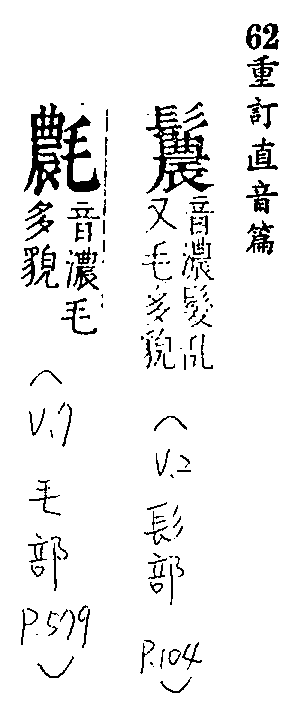 62重訂直音篇
鬞
音濃髮亂
又毛多貌
(V.2髟部P.104)
𣰊
音濃毛
多貌
(V.7毛部P.579)